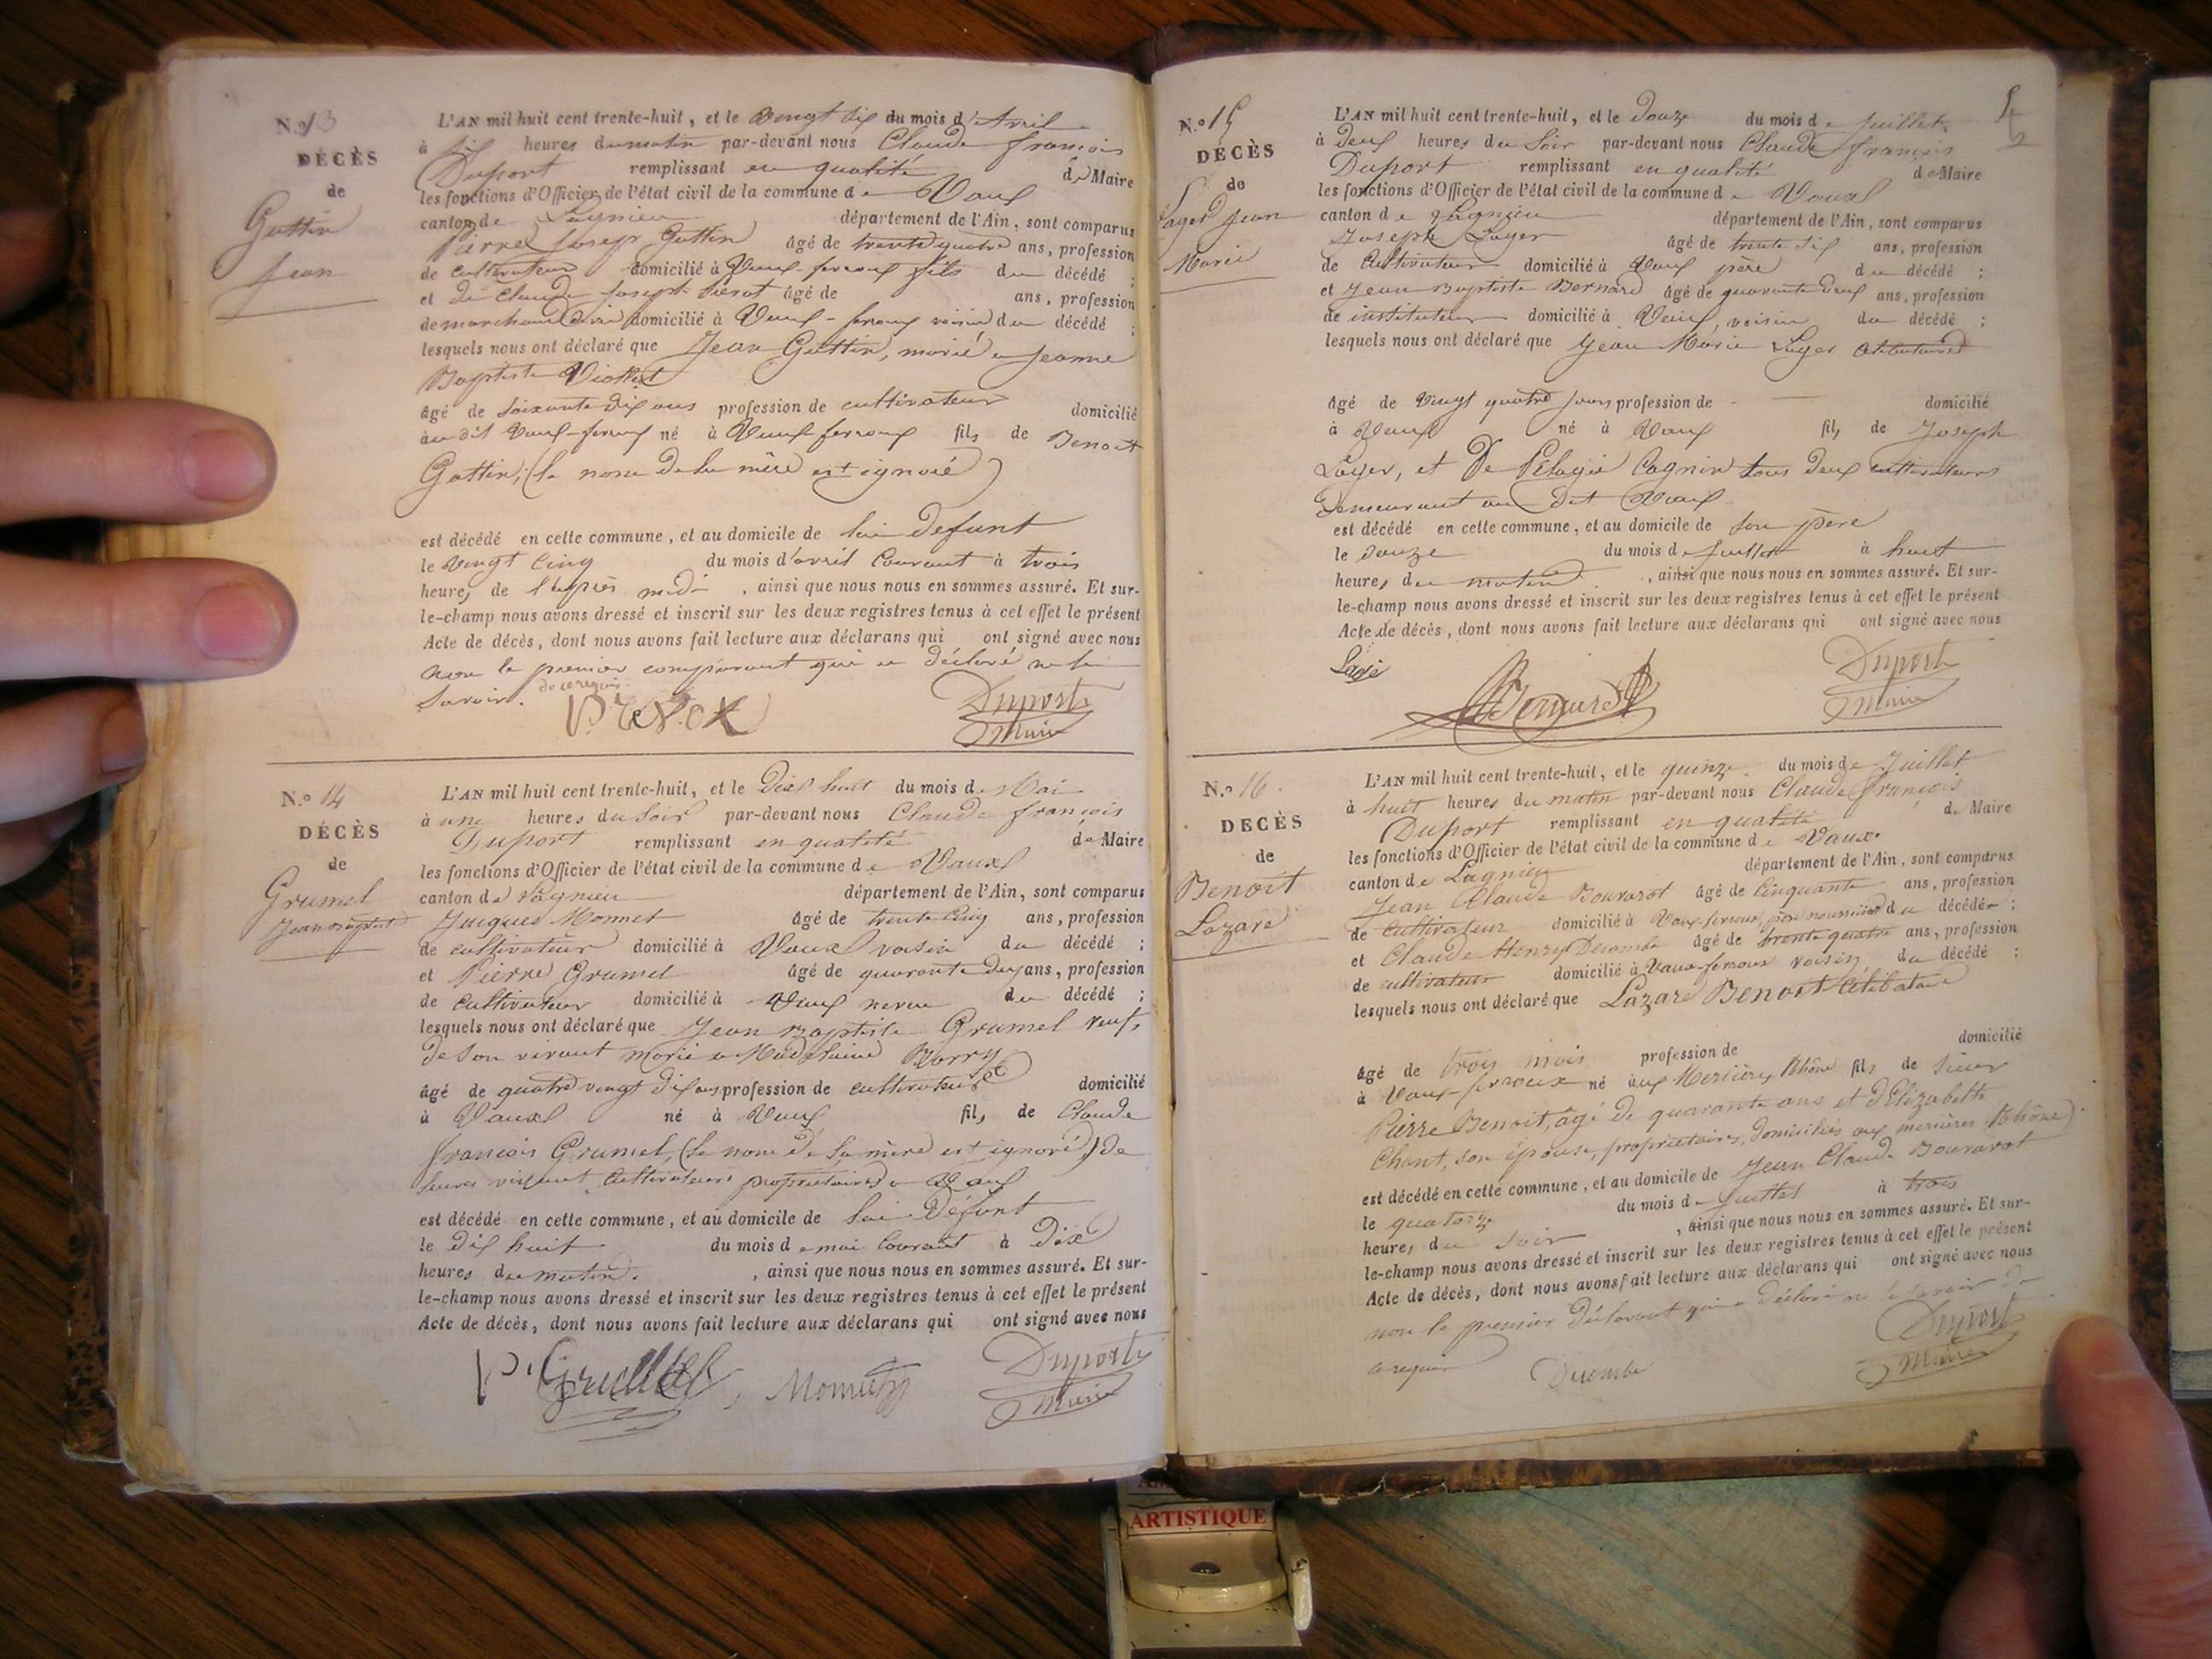 N.o 13
DÉCÈS
de
Guttin
Jean
L'AN mil huit cent trente-huit, et le vingt six du mois d'Avril
à six heures du matin par-devant nous Claude françois
Duport remplissant en qualité de Maire
les fonctions d'Officier de l'état civil de la commune de Vaux
canton de Lagnieu département de l'Ain, sont comparus
Pierre Joseph Guttin âgé de trente quatre ans, profession
de cultivateur domicilié à Vaux-feroux fils du décédé ;
et de Claude Joseph âgé de ans, profession
de marchand domicilié à Vaux-feroux voisin du décédé ;
lesquels nous ont déclaré que Jean Guttin, marié a Jeanne
Baptiste Viollet
âgé de soixante dix ans profession de cultivateur domicilié
au dit Vaux-feroux né à Vaux-feroux fils de Benoit
Guttin, (le nom de la mère est ignoré)
est décédé en cette commune, et au domicile de lui défunt
le vingt cinq du mois d'avril courant à trois
heures de l'après midi, ainsi que nous nous en sommes assuré. Et sur-
le-champ nous avons dressé et inscrit sur les deux registres tenus à cet effet le présent
Acte de décès, dont nous avons fait lecture aux déclarans qui ont signé avec nous
non le premier comparant qui a déclaré ne le
savoir. de ce requis.
Duport
Maire
N.o 14
DÉCÈS
de
Grumel
Jean Baptiste
L'AN mil huit cent trente-huit, et le Dix huit du mois de Mai
à une heures du soir par-devant nous Claude françois
Duport remplissant en qualité de Maire
les fonctions d'Officier de l'état civil de la commune de Vaux
canton de Lagnieu département de l'Ain, sont comparus
Jacques Monnet âgé de trente cinq ans, profession
de cultivateur domicilié à Vaux voisin du décédé ;
et Pierre Grumel âgé de quarante deux ans, profession
de cultivateur domicilié à Vaux neveu du décédé ;
lesquels nous ont déclaré que Jean Baptiste Grumel veuf,
de son vivant marié a Madelaine Borry
âgé de quatre vingt dix ans profession de cultivateur domicilié
à Vaux né à Vaux fils de Claude
françois Grumel, (le nom de sa mère est ignoré) de
leurs vivant cultivateurs propriétaires a Vaux
est décédé en cette commune, et au domicile de lui Défunt
le dix huit du mois de mai courant à Dix
heures du matin, ainsi que nous nous en sommes assuré. Et sur-
le-champ nous avons dressé et inscrit sur les deux registres tenus à cet effet le présent
Acte de décès, dont nous avons fait lecture aux déclarans qui ont signé avec nous
P. Grumel Monnet Duport
Maire
N.o 15
DÉCÈS
de
Layer Jean
Marie
L'AN mil huit cent trente-huit, et le douze du mois de Juillet
à deux heures du soir par-devant nous Claude françois
Duport remplissant en qualité de Maire
les fonctions d'Officier de l'état civil de la commune de Vaux
canton de Lagnieu département de l'Ain, sont comparus
Joseph Layer âgé de trente six ans, profession
de cultivateur domicilié à Vaux père du décédé ;
et Jean Baptiste Bernard âgé de quarante deux ans, profession
de instituteur domicilié à Vaux, voisin du décédé ;
lesquels nous ont déclaré que Jean Marie Layer célibataire
âgé de vingt quatre jours profession de domicilié
à Vaux né à Vaux fils de Joseph
Layer, et De Pélagie Cognin tous deux cultivateurs
demeurant au dit Vaux
est décédé en cette commune, et au domicile de son père
le douze du mois de Juillet à huit
heures du matin, ainsi que nous nous en sommes assuré. Et sur-
le-champ nous avons dressé et inscrit sur les deux registres tenus à cet effet le présent
Acte de décès, dont nous avons fait lecture aux déclarans qui ont signé avec nous
Bernard Duport
Maire
N.o 16
DÉCÈS
de
Benoit
Lazare
L'AN mil huit cent trente-huit, et le quinze du mois de Juillet
à huit heures du matin par-devant nous Claude françois
Duport remplissant en qualité de Maire
les fonctions d'Officier de l'état civil de la commune de Vaux
canton de Lagnieu département de l'Ain, sont comparus
Jean Claude Bouvarot âgé de cinquante ans, profession
de cultivateur domicilié à Vaux-feroux, père nourricier du décédé ;
et Claude Henry Decombe âgé de trente quatre ans, profession
de cultivateur domicilié à Vaux-feroux voisin du décédé ;
lesquels nous ont déclaré que Lazare Benoit Célibataire
âgé de trois mois profession de domicilié
à Vaux-feroux né aux Mercières Rhône fils de sieur
Pierre Benoit, âgé de quarante ans et d'Elizabeth
Chant, son épouse, propriétaires, domiciliés aux mercières (Rhône)
est décédé en cette commune, et au domicile de Jean Claude Bouvarot
le quatorze du mois de Juillet à trois
heures du soir, ainsi que nous nous en sommes assuré. Et sur-
le-champ nous avons dressé et inscrit sur les deux registres tenus à cet effet le présent
Acte de décès, dont nous avons fait lecture aux déclarans qui ont signé avec nous
non le premier déclarant qui a déclaré ne le savoir de
ce requis Decombe Duport
Maire
ARTISTIQUE